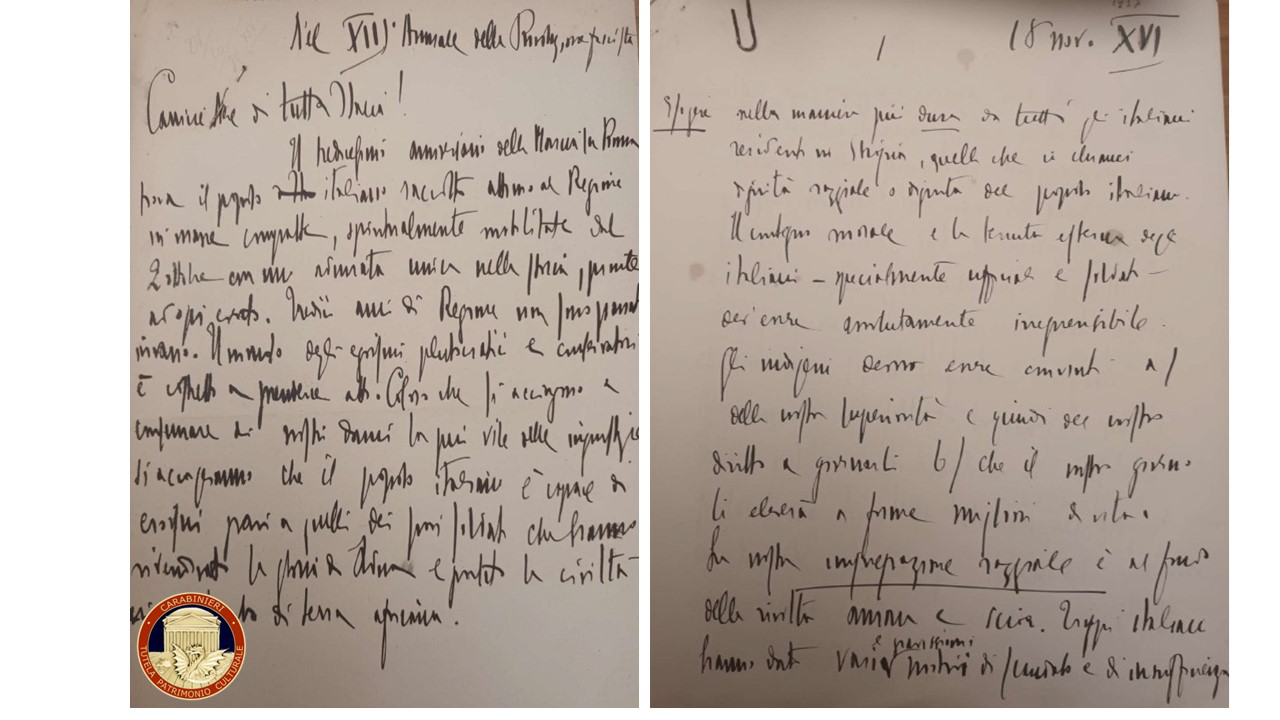 Nel XIII° Annuale della Rivoluz. ne fascista
Camicie Nere di tutta Italia!
Il tredicesimo anniversario della Marcia su Roma
trova il popolo italiano raccolto attorno al Regime
in masse compatte, spiritualmente mobilitate dal
2 ottobre con una adunata unica nella storia, pronte
ad ogni evento. Tredici anni di Regime non sono passati
invano. Il mondo degli egoismi plutocratici e conservatori
è costretto a prenderne atto. Coloro che si accingono a
consumare ai nostri danni la più vile delle ingiustizie
si accorgeranno che il popolo italiano è capace di
eroismi pari a quelli dei suoi soldati che hanno
rivendicato la gloria di Adua e portato la civiltà
di terra africana.
CARABINIERI
TUTELA PATRIMONIO CULTURALE
1
18 nov. XVI
Esigere nella maniera più dura da tutti gli italiani
residenti in Etiopia, quella che si chiami
dignità razziale o dignità del popolo italiano.
Il contegno morale e la tenuta esterna degli
italiani – specialmente ufficiali e soldati –
dev'essere assolutamente irreprensibile.
Gli indigeni devono essere convinti a/
della nostra superiorità e quindi del nostro
diritto a governarli b/ che il nostro governo
li eleverà a forme migliori di vita.
La nostra impreparazione razziale è al fondo
della rivolta amara e scioa. Troppi italiani
hanno dato vari e gravissimi motivi di scandalo e di insufficienza